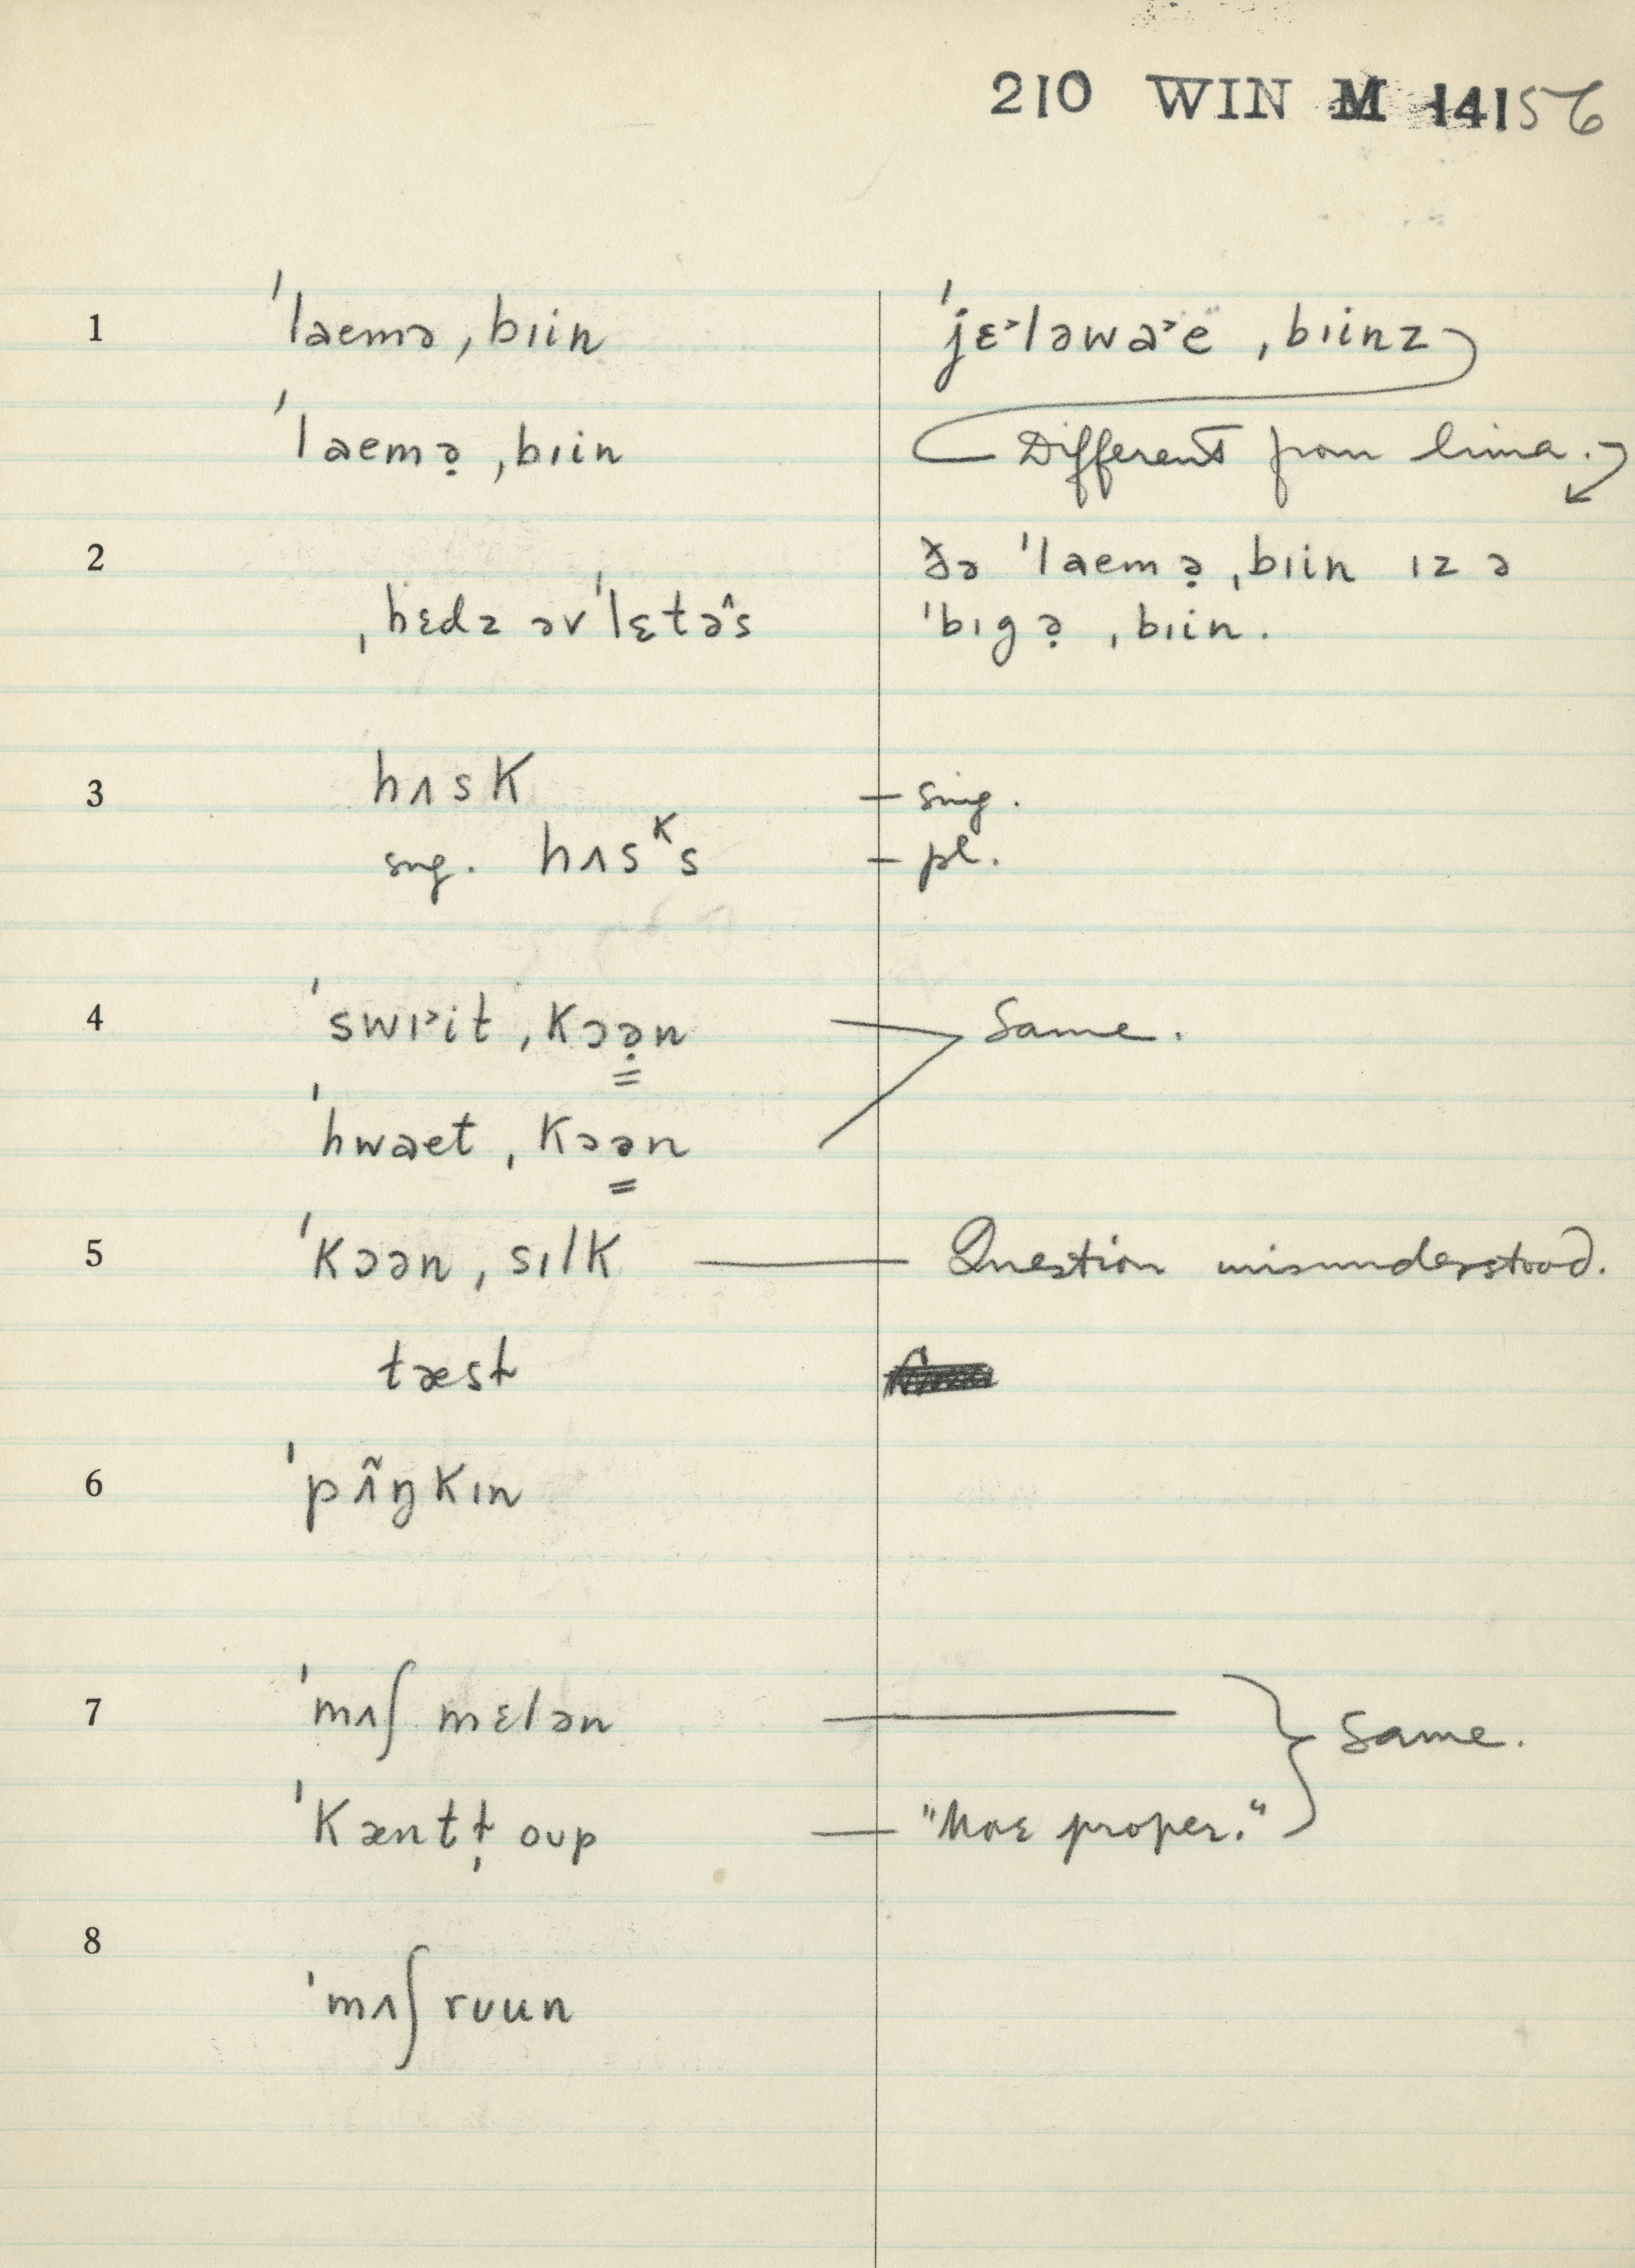 210 WIN M 14156
1 ˈlaemə ˌbɪin ˈjɛ˃ləwa˃ë ˌbɪinz
ˈlaemə̣ ˌbɪin Different from lima.
2 ðə ˈlaemə̣ ˌbɪin ɪz ə
ˌhɛdz əvˈlɛtə̂s ˈbɪgə̣ ˌbɪin.
3 hʌsk — sing.
sng. hʌsᵏs — pl.
4 ˈswɪ˃it ˌkɔə̣n Same.
ˈhwaet ˌkɔən
5 ˈkɔən ˌsɪlk — Question misunderstood.
tæsɫ
6 ˈpʌ̃ŋkɪn
7 ˈmʌʃ mɛlən — Same.
ˈkæntɫ̩ oʊp — "More proper."
8 ˈmʌʃ rʊun